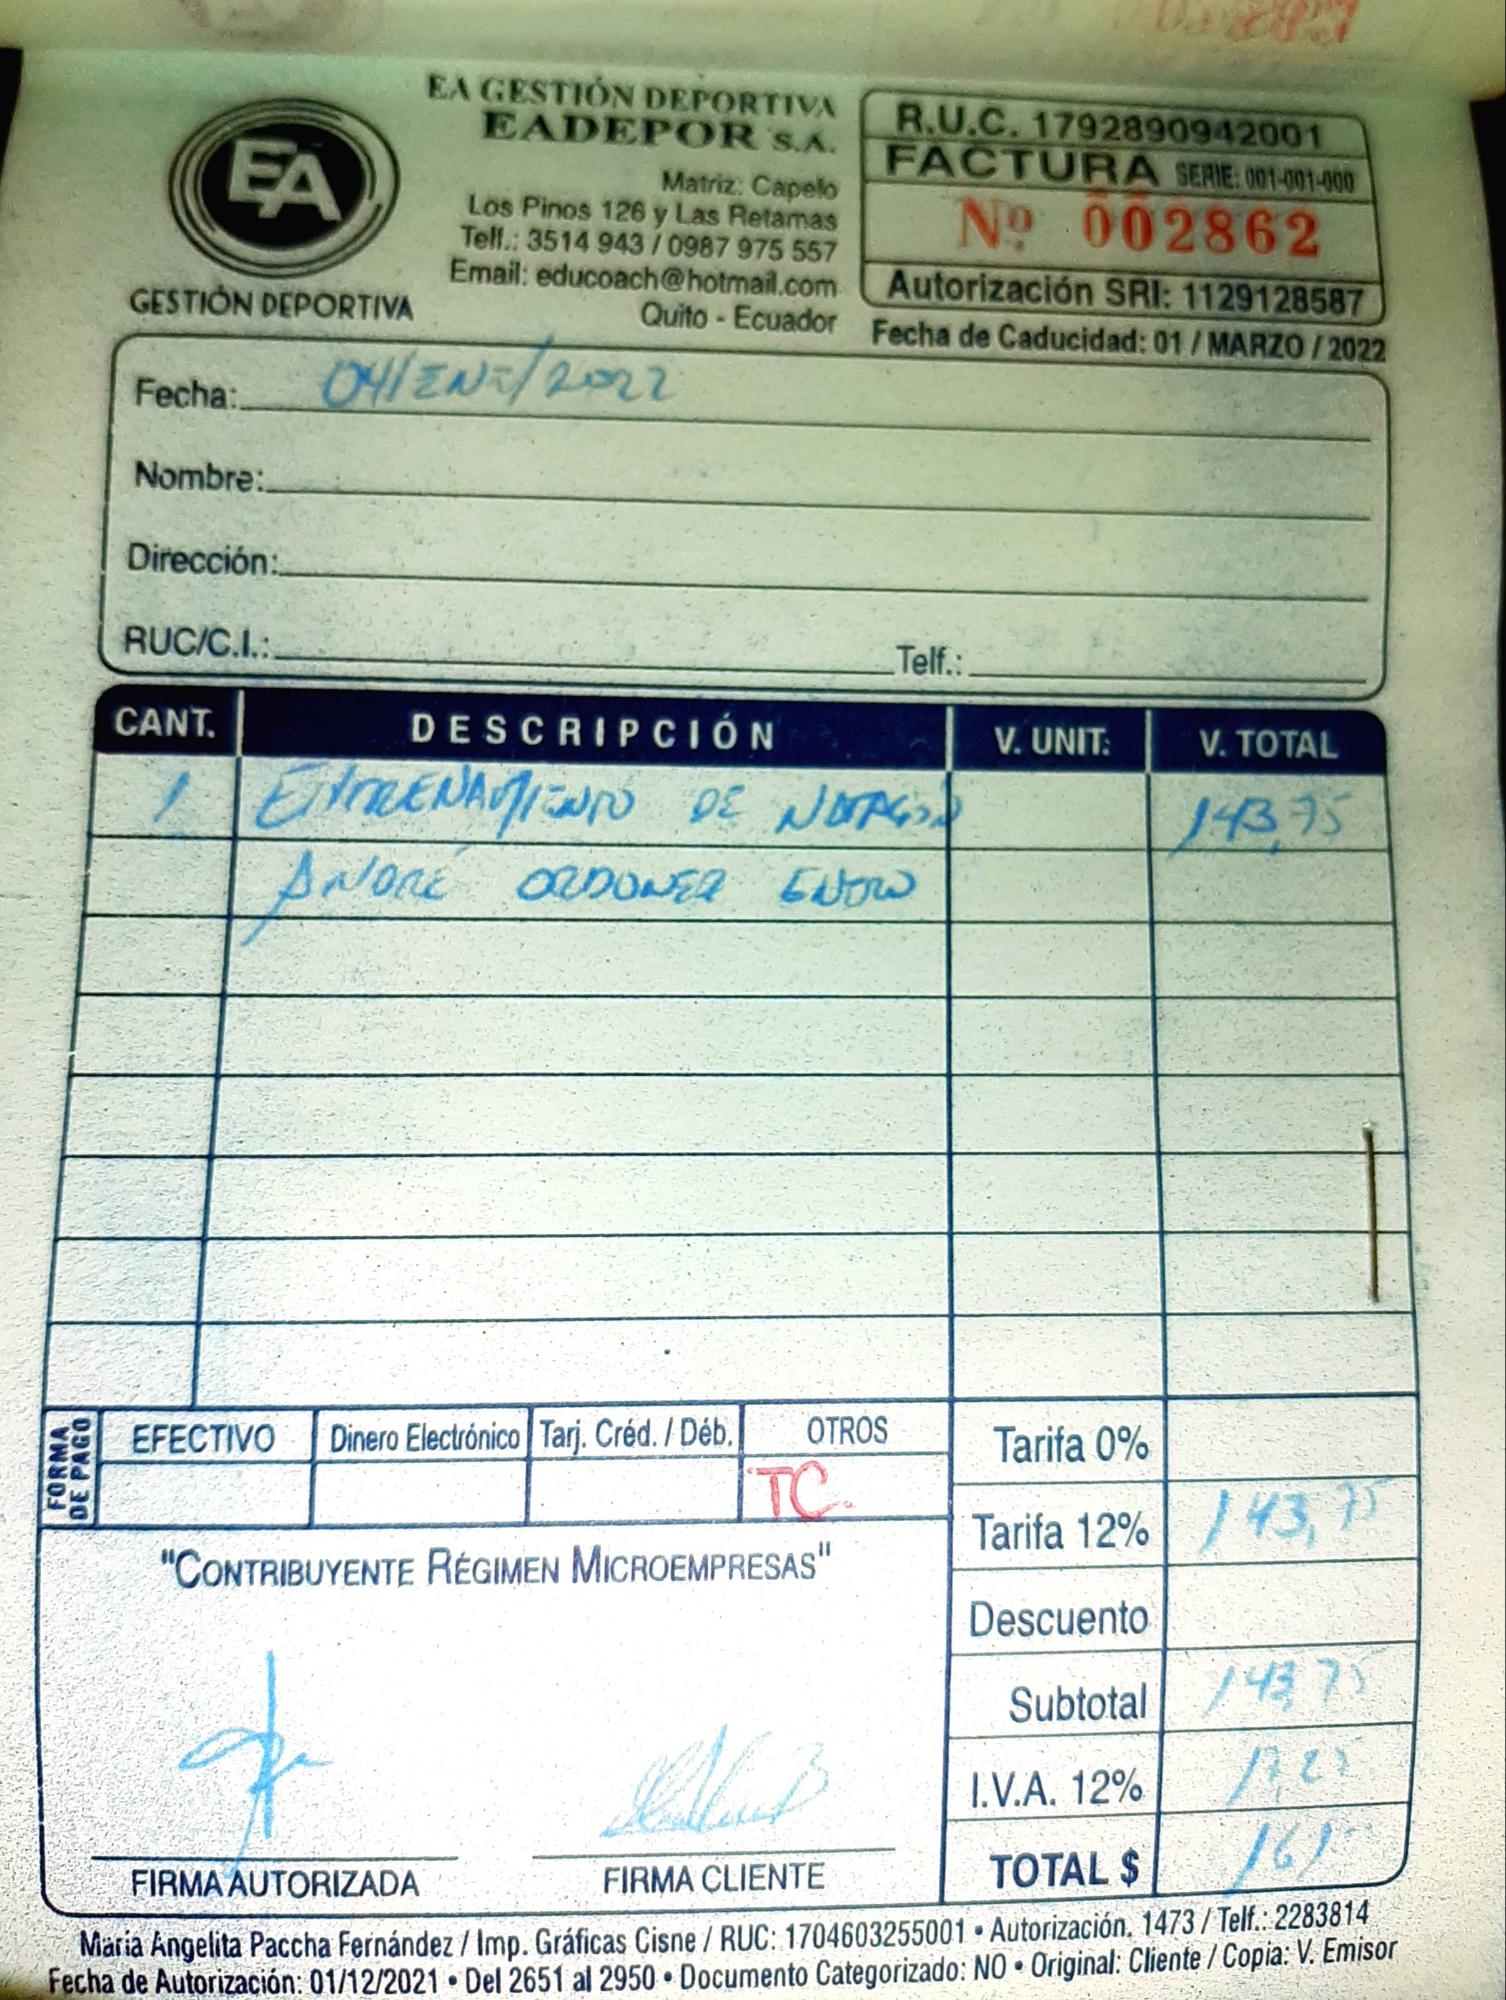 EA GESTIÓN DEPORTIVA
EADEPOR S.A.
Matriz: Capelo
Los Pinos 126 y Las Retamas
Telf.: 3514 943 / 0987 975 557
Email: educoach@hotmail.com
Quito - Ecuador
EA
GESTIÓN DEPORTIVA
R.U.C. 1792890942001
FACTURA SERIE: 001-001-000
Nº 002862
Autorización SRI: 1129128587
Fecha de Caducidad: 01 / MARZO / 2022
Fecha: 04/ENE/2022
Nombre:
Dirección:
RUC/C.I.: Telf.:
CANT. DESCRIPCIÓN V. UNIT: V. TOTAL
1 ENTRENAMIENTO DE NATACIÓN 143,75
ANDRÉ ORDOÑEZ ENERO
FORMA DE PAGO EFECTIVO Dinero Electrónico Tarj. Créd. / Déb. OTROS
TC.
Tarifa 0%
Tarifa 12% 143,75
Descuento
Subtotal 143,75
I.V.A. 12% 17,25
TOTAL $ 161
"CONTRIBUYENTE RÉGIMEN MICROEMPRESAS"
FIRMA AUTORIZADA FIRMA CLIENTE
María Angelita Paccha Fernández / Imp. Gráficas Cisne / RUC: 1704603255001 • Autorización. 1473 / Telf.: 2283814
Fecha de Autorización: 01/12/2021 • Del 2651 al 2950 • Documento Categorizado: NO • Original: Cliente / Copia: V. Emisor